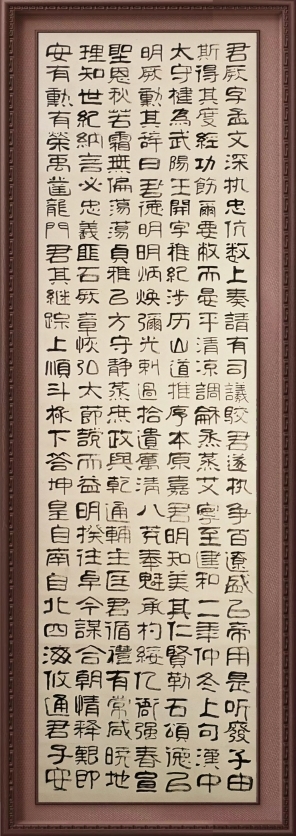 君厥字孟文深执忠伉数上奏請有司議駮君遂执争百遼盛㠯帝用是听發子由
斯得其度經功飭爾要敝而晏平清凉調龢烝烝艾寧至建和二年仲冬上旬漢中
太守楗為武陽王開字稚紀涉历山道推序本原嘉君明知美其仁賢勒石頌德㠯
明厥勲其辞曰君德明明炳焕彌光刺過拾遺厲清八荒奉魁承杓綏亿衙强春宣
聖恩秋若霜無偏蕩蕩貞雅㠯方守静烝庶政與乾通輔主匡君循禮有常咸晓地
理知世紀納言必忠義匪石厥章恢弘大節説而益明揆往卓今謀合朝情释艱即
安有勲有榮禹鑿龍門君其継踪上順斗極下答坤皇自南自北四海攸通君子安